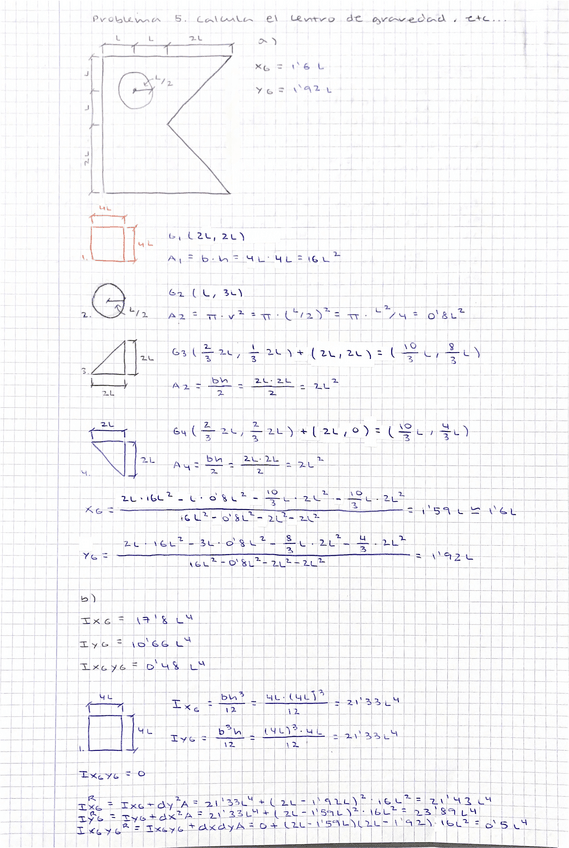 Problema 5. Calcula el centro de gravedad, etc...
L L 2L
a)
L/2
XG = 1'6 L
YG = 1'92 L
L
L
2L
4L
4L
1.
G1 (2L, 2L)
A1 = b·h = 4L·4L = 16L²
2.
L/2
G2 (L, 3L)
A2 = π·r² = π·(L/2)² = π·L²/4 = 0'8L²
3.
2L
2L
G3 (2/3 2L, 1/3 2L) + (2L, 2L) = (10/3 L, 8/3 L)
A2 = bh/2 = 2L·2L/2 = 2L²
2L
2L
4.
G4 (2/3 2L, 2/3 2L) + (2L, 0) = (10/3 L, 4/3 L)
A4 = bh/2 = 2L·2L/2 = 2L²
XG = (2L·16L² - L·0'8L² - 10/3 L·2L² - 10/3 L·2L²) / (16L² - 0'8L² - 2L² - 2L²) = 1'59 L ≈ 1'6L
YG = (2L·16L² - 3L·0'8L² - 8/3 L·2L² - 4/3·2L²) / (16L² - 0'8L² - 2L² - 2L²) = 1'92L
b)
IXG = 17'8 L⁴
IYG = 10'66 L⁴
IXGYG = 0'48 L⁴
4L
4L
1.
IXG = bh³/12 = 4L·(4L)³/12 = 21'33L⁴
IYG = b³h/12 = (4L)³·4L/12 = 21'33L⁴
IXGYG = 0
IXG^R = IXG + dy²A = 21'33L⁴ + (2L - 1'92L)²·16L² = 21'43 L⁴
IYG^R = IYG + dx²A = 21'33L⁴ + (2L - 1'59L)²·16L² = 23'89L⁴
IXGYG^R = IXGYG + dxdyA = 0 + (2L - 1'59L)(2L - 1'92)·16L² = 0'5 L⁴